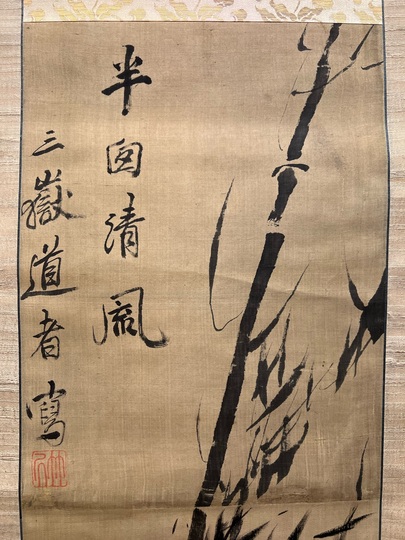 半囱清風
三嶽道者寫